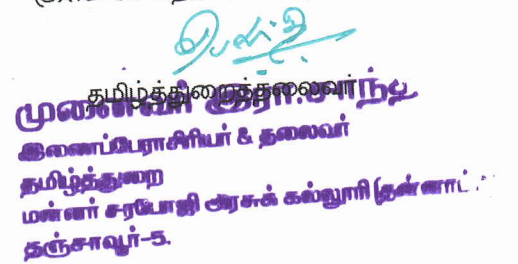 தமிழ்த்துறைத்தலைவர்
முனைவர்
இணைப்பேராசிரியர் & தலைவர்
தமிழ்த்துறை
மன்னர் சரபோஜி அரசுக் கல்லூரி (தன்னாட்
தஞ்சாவூர்-5.